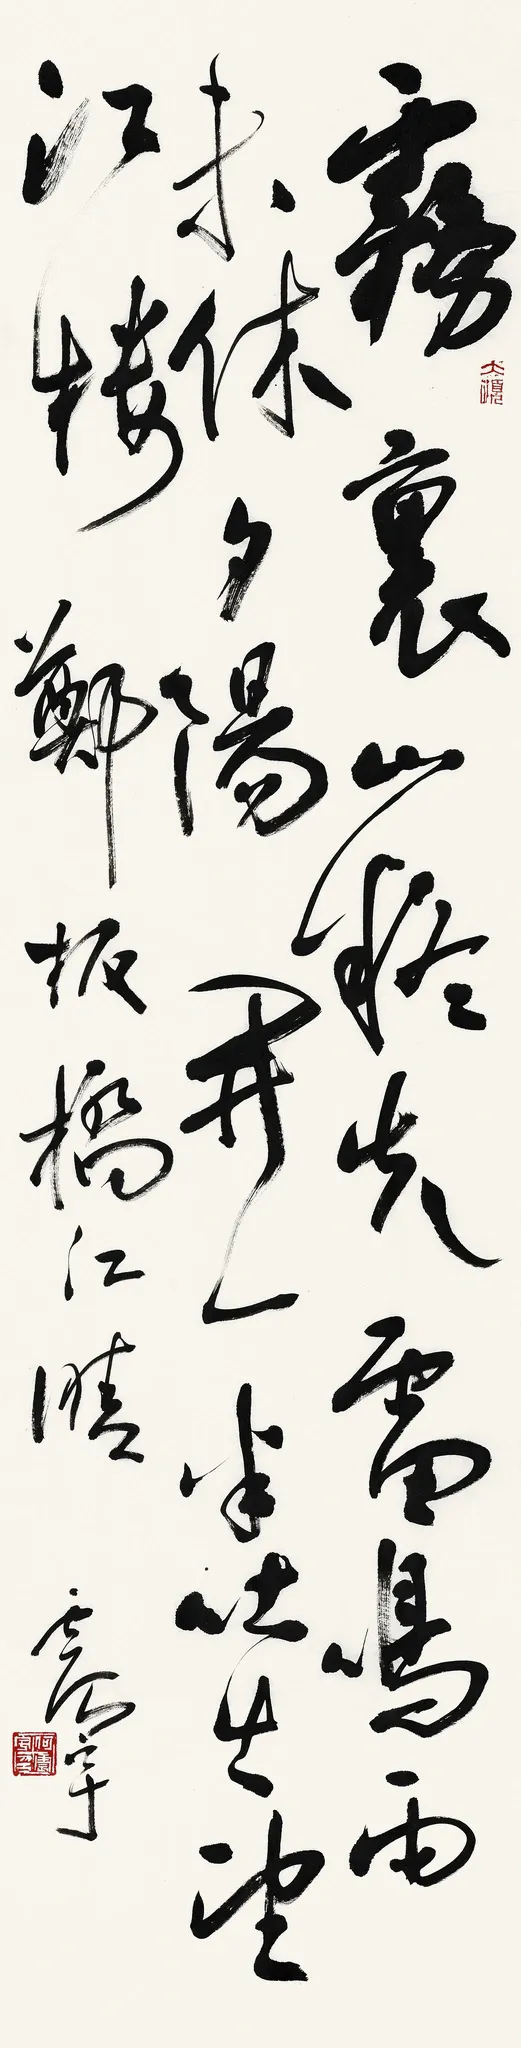 霧裏山疑失雷鳴雨
未休夕陽開一半吐出望
江樓 鄭板橋江晴